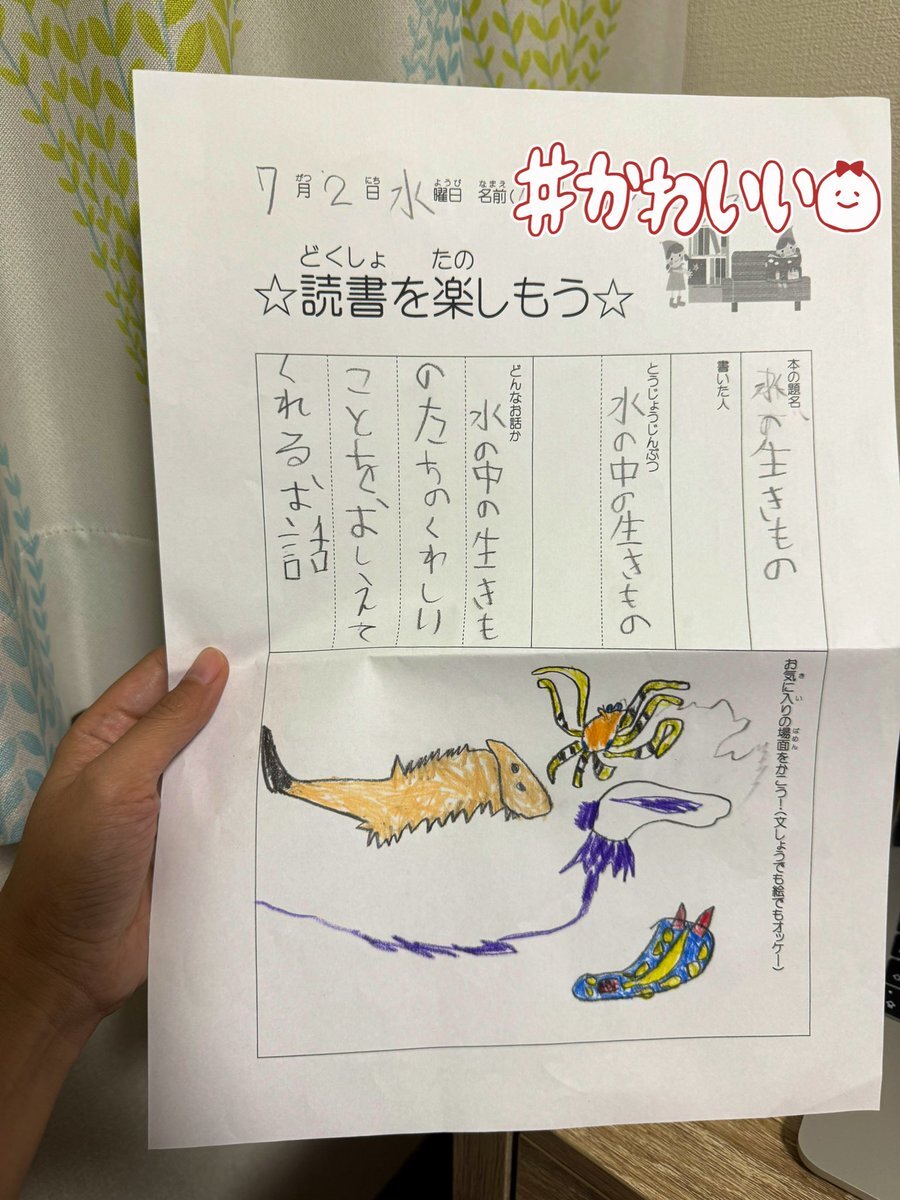 7月2日水曜日 名前(
がつ にち ようび なまえ
#かわいい
どくしょ たの
☆読書を楽しもう☆
本の題名
水の生きもの
書いた人
とうじょうじんぶつ
水の中の生きもの
どんなお話か
水の中の生きも
のたちのくわしい
ことを、おしえて
くれるお話
お気に入りの場面をかこう!(文しょうでも絵でもオッケー)
き い ばめん